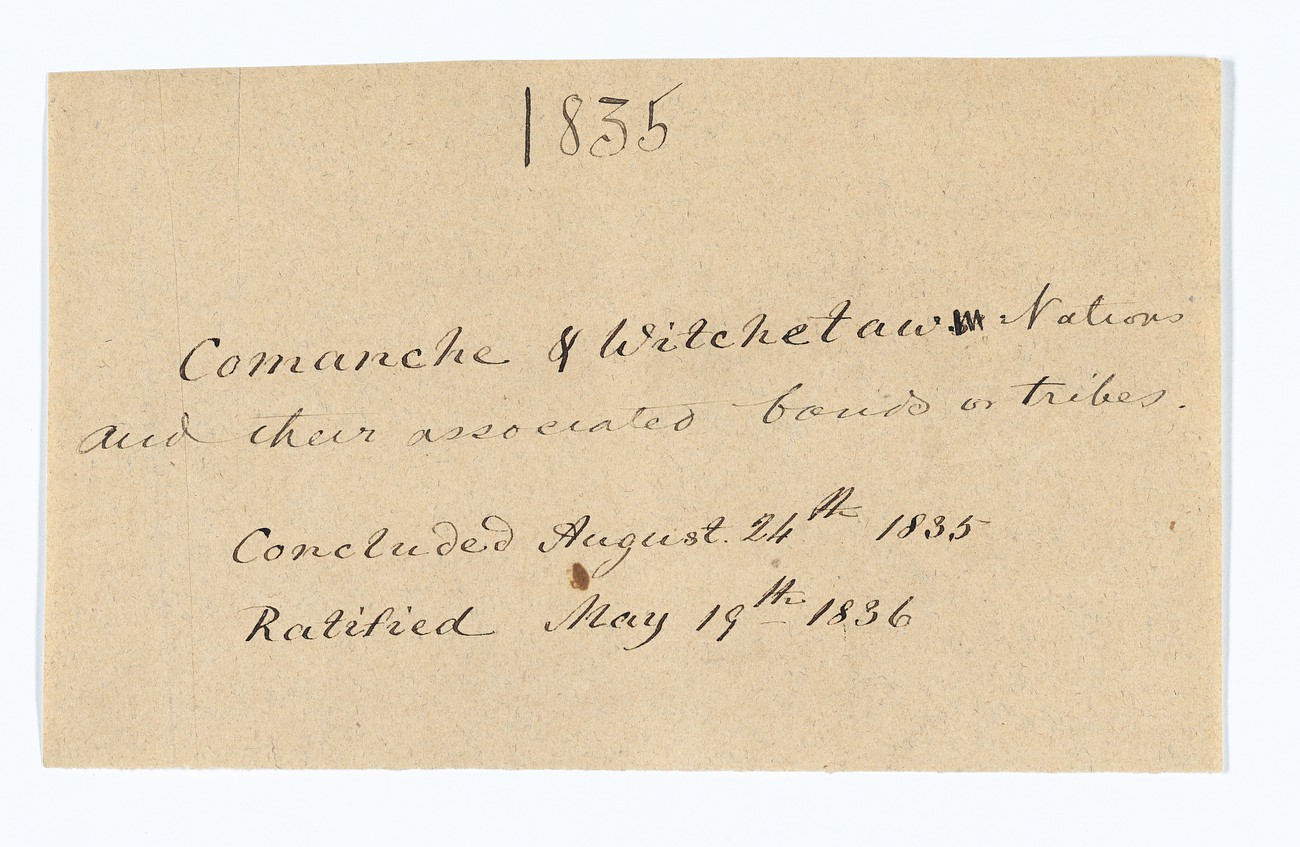 1835
Comanche & Witchetaw Nations
and their associated bands or tribes.
Concluded August. 24th 1835
Ratified May 19th 1836